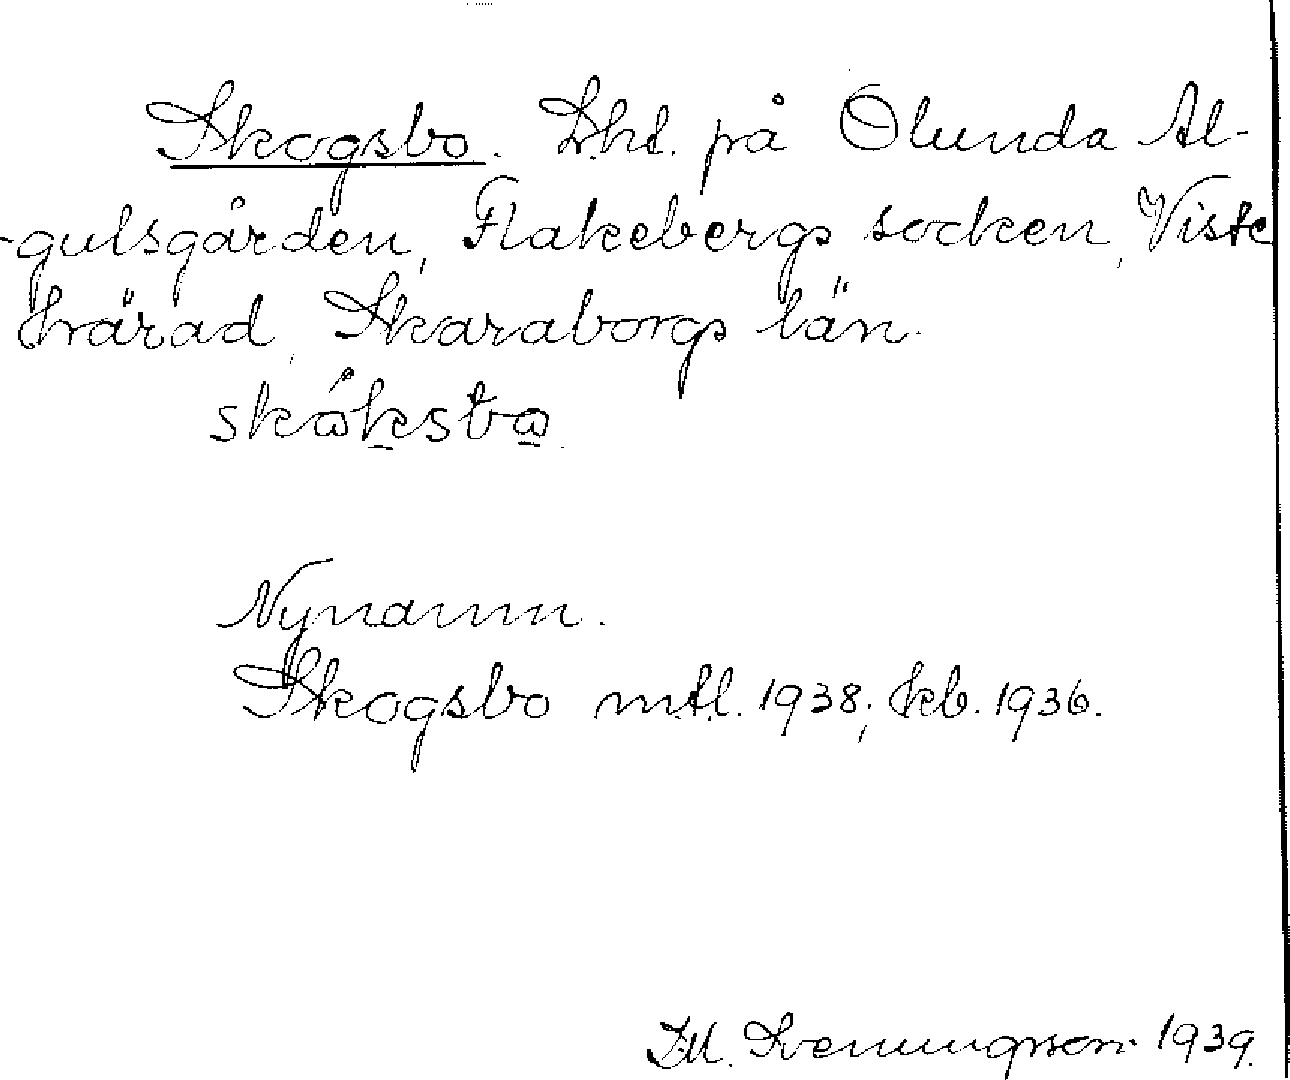 Skogsbo. Lht. på Ölunda Al-
-gulsgården, Flakebergs socken, Viste
härad, Skaraborgs län.
skóksbo.
Nynamn.
Skogsbo mtl. 1938; kb. 1936.
Svenungsson 1939.